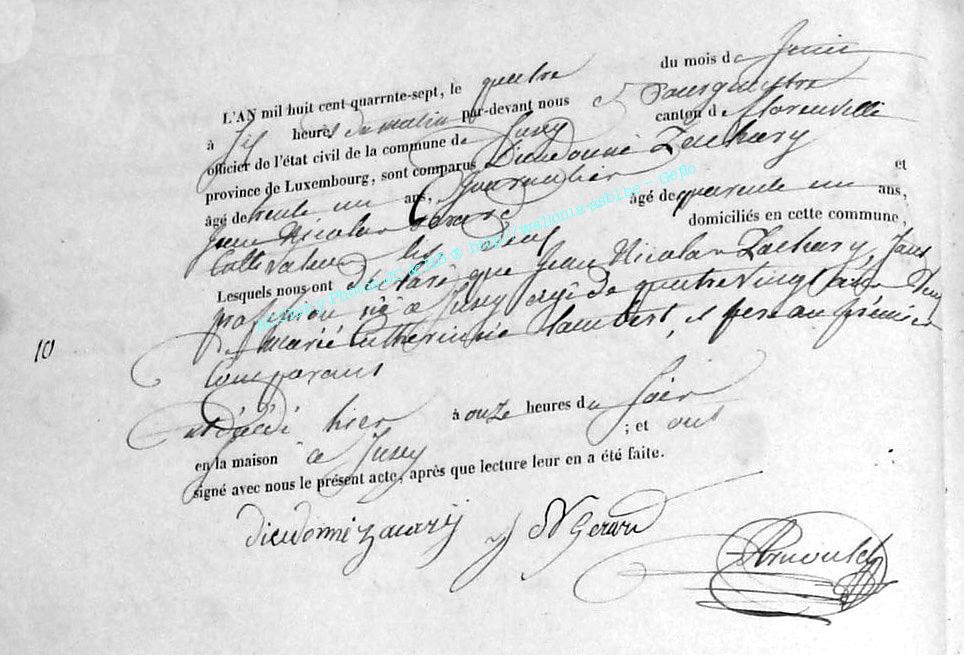 L'AN mil huit cent quarrnte-sept, le quatre du mois de Juin
à six heures du matin par-devant nous Bourgmestre
officier de l'état civil de la commune de Jusey canton de florenville
province de Luxembourg, sont comparus Dieudonné Zachary
âgé de trente un ans, et
Jean Nicolas Gerard âgé de quarente un ans,
Cultivateur les deux domiciliés en cette commune,
Lesquels nous ont déclaré que Jean Nicolas Zachary, sans
profession né à Jusey agé de quatre vingt deux
marié Catherinne Lambert, et pere au prémier
Comparant
10
est décédé hier à onze heures du soir
en la maison à Jusey ; et ont
signé avec nous le présent acte, après que lecture leur en a été faite.
dieudonné zacary JN Gerard